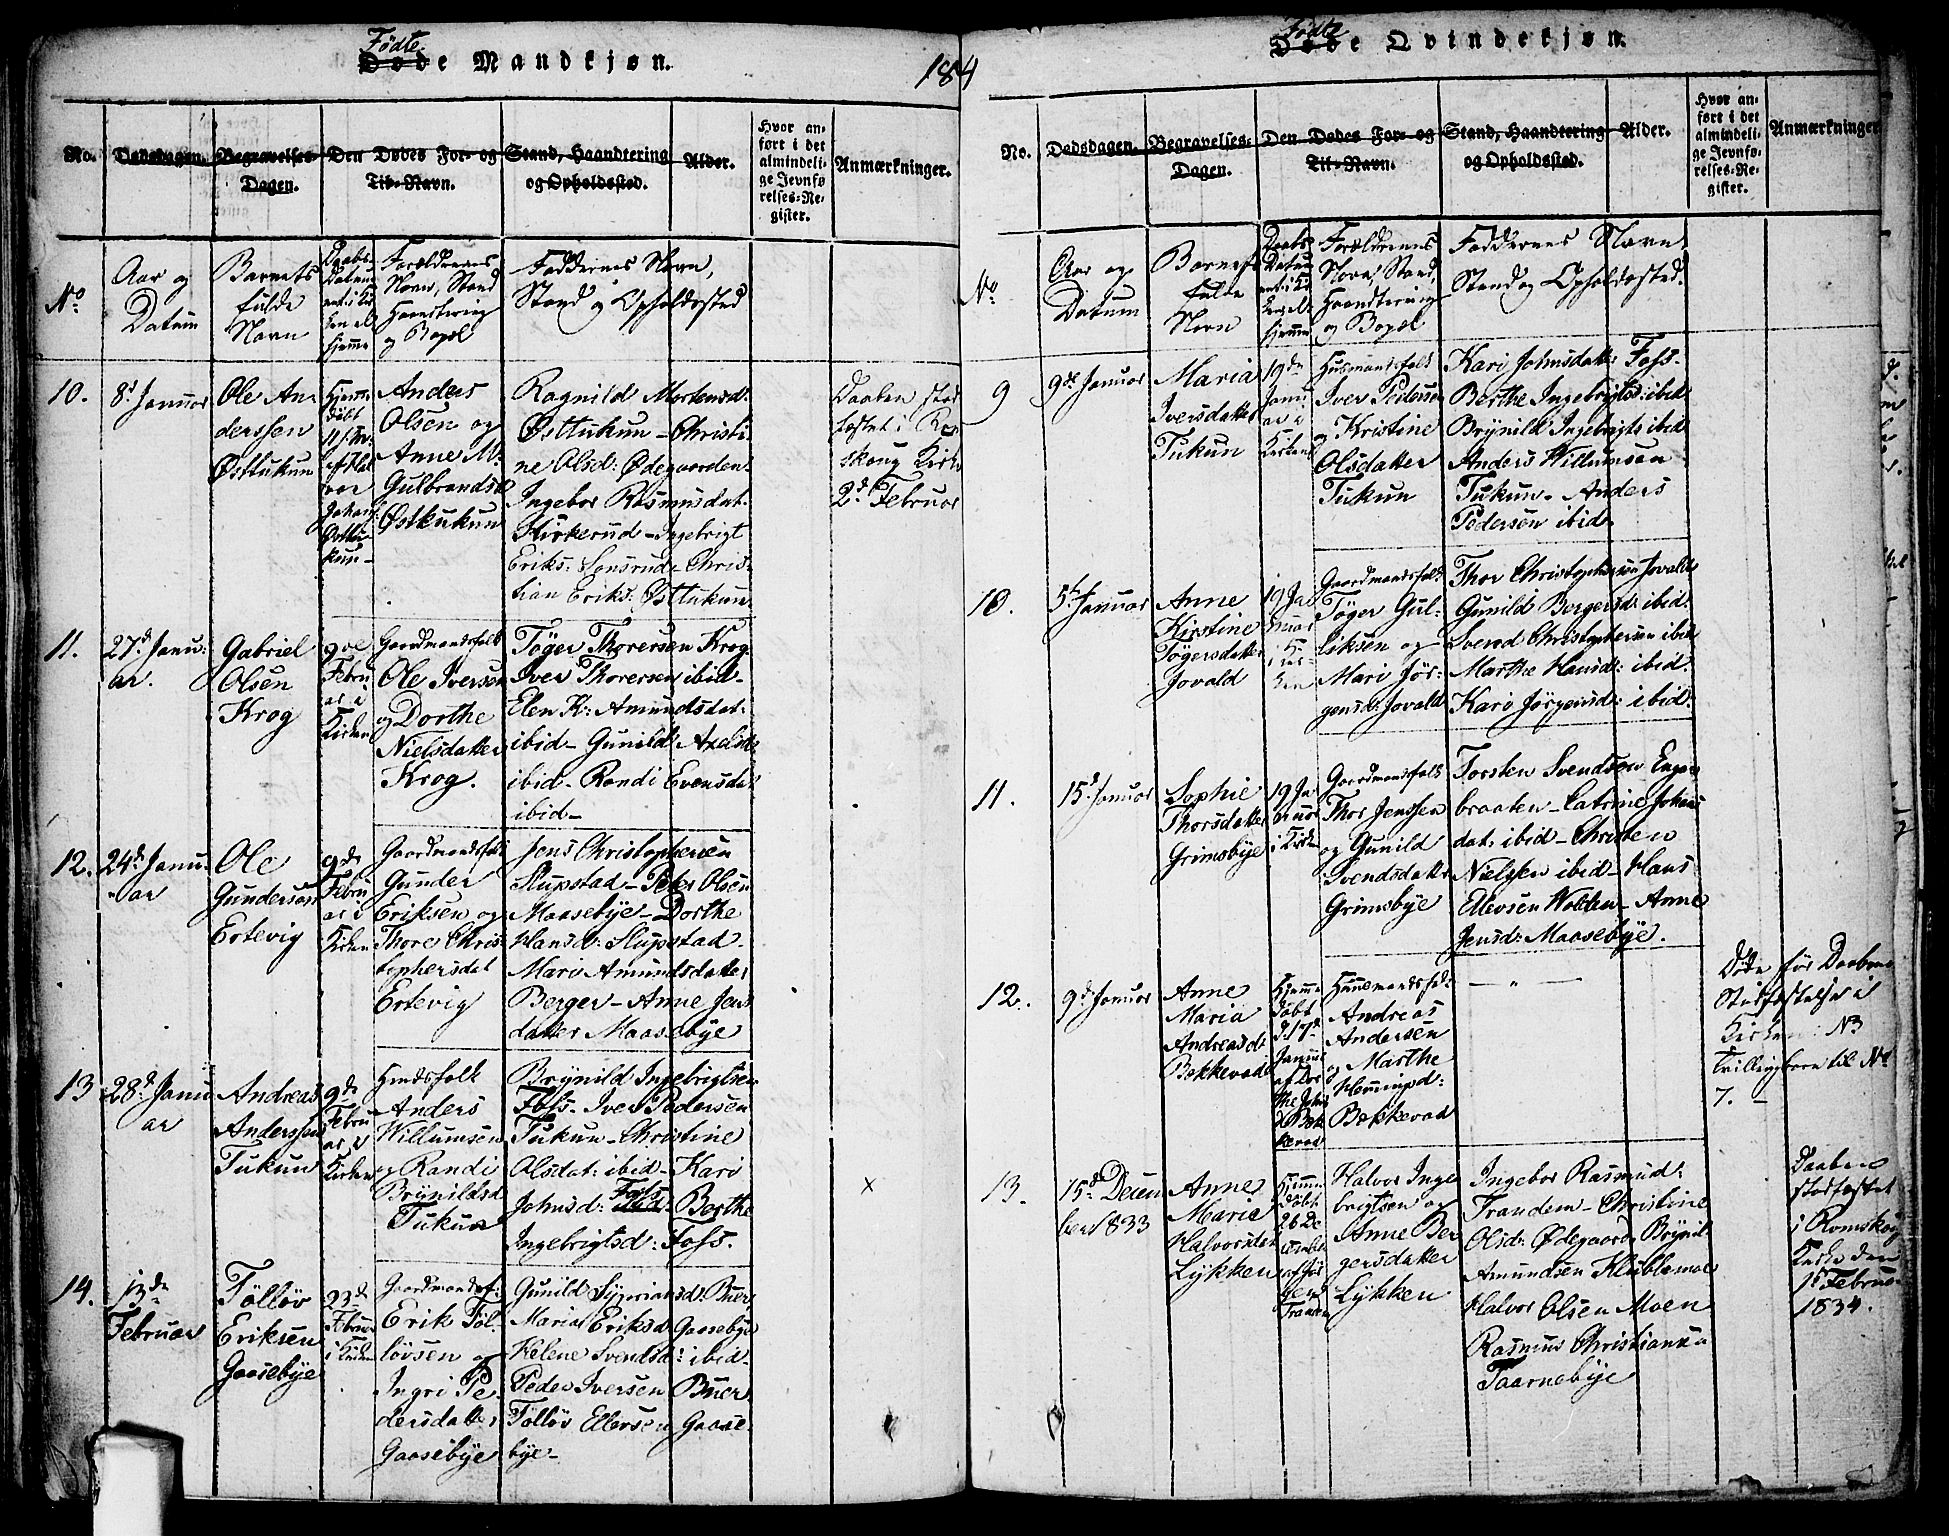 Fødte
Døde Mandkjøn.
184
No.
Dødsdagen.
Begravelses-
Dagen.
Den Dødes For- og
Til-Navn.
Stand, Haandtering
og Opholdssted.
Alder.
Hvor an-
ført i det
almindeli-
ge Jevnfø-
relses-Re-
gister.
Anmærkninger.
No.
Aar og
Datum
Barnets
fulde
Navn
Daabs-
Datum
Forældrenes
Navn, Stand
Haandtering
og Bopæl
Faddernes Navn,
Stand og Opholdssted
10.
8d Januar
Ole An
derssen
Østtukun
Hjemme
døbt
Anders
Olsen og
Anne M.
Gulbrandsd
Østkukun
Ragnild Mortensd:
Østtukun - Christi-
ne Olsd: Ødegaarden.
Ingebor Rasmusdat.
Kirkerud - Ingebrigt
Eriks: Sonsrud - Chris-
tian Eriks: Østtukun.
Daaben stad
fæstet i Rom
skoug Kirke
2d Februar
11.
27d Janu:
ar.
Gabriel
Olsen
Krog
9de
Febru
ar i
Kirken
Gaardmandsfolk
Ole Iversen
og Dorthe
Nielsdatter
Krog.
Töger Thorersen Krog
Iver Thorersen ibid -
Elen K: Amundsdat:
ibid - Gunild Axelsd:
ibid - Randi Evensdat
ibid -
12.
24d Janu-
ar
Ole
Gundersen
Ertevig
9de
Febru
ar i
Kirken
Gaardmandsfolk
Gunder
Eriksen og
Thore Chris
tophersdat
Ertevig
Jens Christophersen
Slupstad - Peter Olsen
Maasebye - Dorthe
Hansd: Slupstad -
Mari Amundsdatter
Berger - Anne Jens
datter Maasebye
13
28d Janu
ar
Andreas
Anderssen
Tukun
9de
Febru
ar i
Kirken
Huusfolk
Anders
Willumsen
og Randi
Brynildsd
Tukun
Brynild Ingebrigtsen
Foss - Iver Pedersen
Tukun - Christine
Olsdat: ibid - Kari
Johnsd: Foss Berthe
Ingebrigtsd: Foss.
x
14.
13de
Februar
Tölløv
Eriksen
Gaasebye
23de
Februar
i Kirken
Gaardmandsf:
Erik Töl-
løvsen og
Ingri Pe-
dersdatter
Gaasebye
Gunild Sÿverinsd: Buer
Maria Eriksd Gaasebye
Helene Svendsd: ibid -
Peder Iversen Buer
Tölløv Ellersen Gaase-
bye -
Fødte
Døde Qvindekjøn.
No.
Dødsdagen.
Begravelses-
Dagen.
Den Dødes For- og
Til-Navn.
Stand, Haandtering
og Opholdssted.
Alder.
Hvor an-
ført i det
almindeli-
ge Jevnfø-
relses-Re-
gister.
Anmærkninger
No
Aar og
Datum
Barnets
fulde
Navn
Daabs
Datum
Forældrenes
Navn, Stand,
Haandtering
og Bopæl
Faddernes Navn
Stand og Opholdssted.
9
9de Januar
Maria
Iversdatter
Tukun
19de
Janu
ar i
Kirken
Husmandsfolk
Iver Pedersen
og Kristine
Olsdatter
Tukun
Kari Johnsdatt: Foss.
Berthe Ingebrigtsd: ibid
Brynild Ingebrigts ibid
Anders Willumsen
Tukun. Anders
Pedersen ibid
10.
5t Januar
Anne
Kirstine
Tögersdatter
Jovald
19 Ja
nuar
i Kir-
ken
Gaardmandsfolk
Töger Gul-
liksen og
Mari Jør-
gensd: Jovald
Thor Christophersen Jovald
Gunild Bergersd: ibid:
Svend Christophersen ibid
Marthe Hansd: ibid.
Kari Jørgensd: ibid:
11.
15d Januar
Sophie
Thorsdatter
Grimsbye
19 Ja
nuar
i Kirken
Gaardmandsfolk
Thor Jenssen
og Gunild
Svendsdatter
Grimsbye
Torsten Svendsen Enge-
braaten - Catrine Johans
dat: ibid - Christen
Nielsen ibid - Hans
Ellevsen Wolden - Anne
Jensd: Maasebye.
12.
9d Januar
Anne
Maria
Andreasd:
Bekkevad
Hjemme
døbt
d. 17d
Januar
af Dor
the Johns
d Bek
kevad
Huusmandsfolk
Andreas
Andersen
og Marthe
Bekkevad
— „ —
Døde før Daabens
Stadfæstelse i
Kirken. NB
Trillingbarn til No
7. -
13.
15d Decem
ber 1833
Anne
Marie
Halvorsdat
Lykken
Hjemme
døbt
26 De
cember
af Jør
gen
Tranden
Halvor Inge
brigtsen og
Anne Ber
gersdatter
Lykken
Ingebor Rasmusd:
Trandem - Christine
Olsd: Ødegaard - Brynil
Amundsen Klublemoe
Halvor Olsen Moen
Rasmus Christiansen
Taarnebye
Daaben
stadfæstet
i Romskoug
Kirke den
1d Februar
1834.